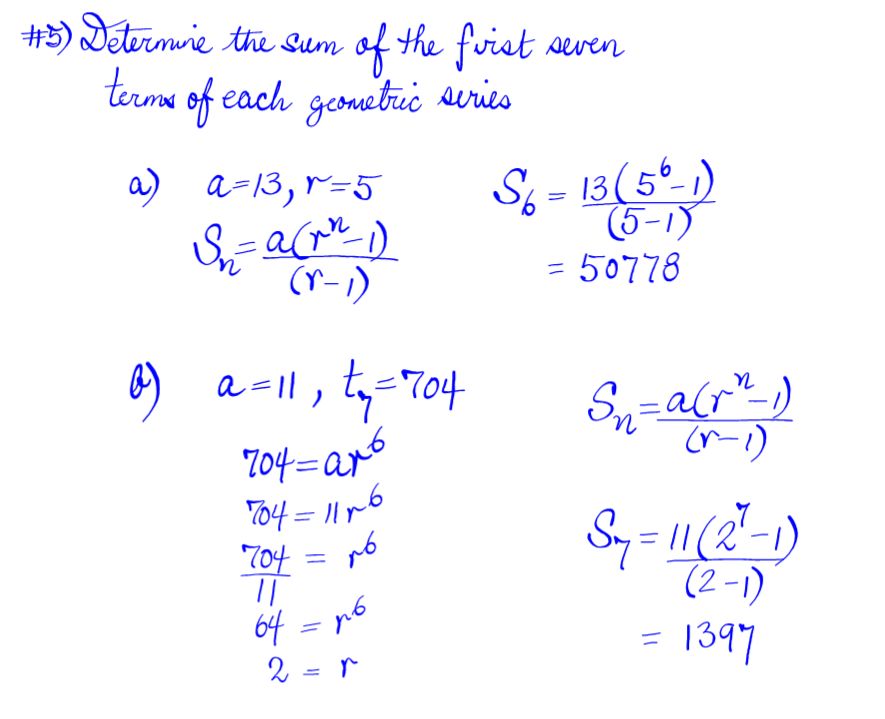 #5) Determine the sum of the first seven
terms of each geometric series
a) a=13, r=5
Sₙ = a(rⁿ-1)
(r-1)
S₆ = 13(5⁶-1)
(5-1)
= 50778
b) a=11, t₇=704
704=ar⁶
704=11r⁶
704 = r⁶
11
64 = r⁶
2 = r
Sₙ = a(rⁿ-1)
(r-1)
S₇ = 11(2⁷-1)
(2-1)
= 1397